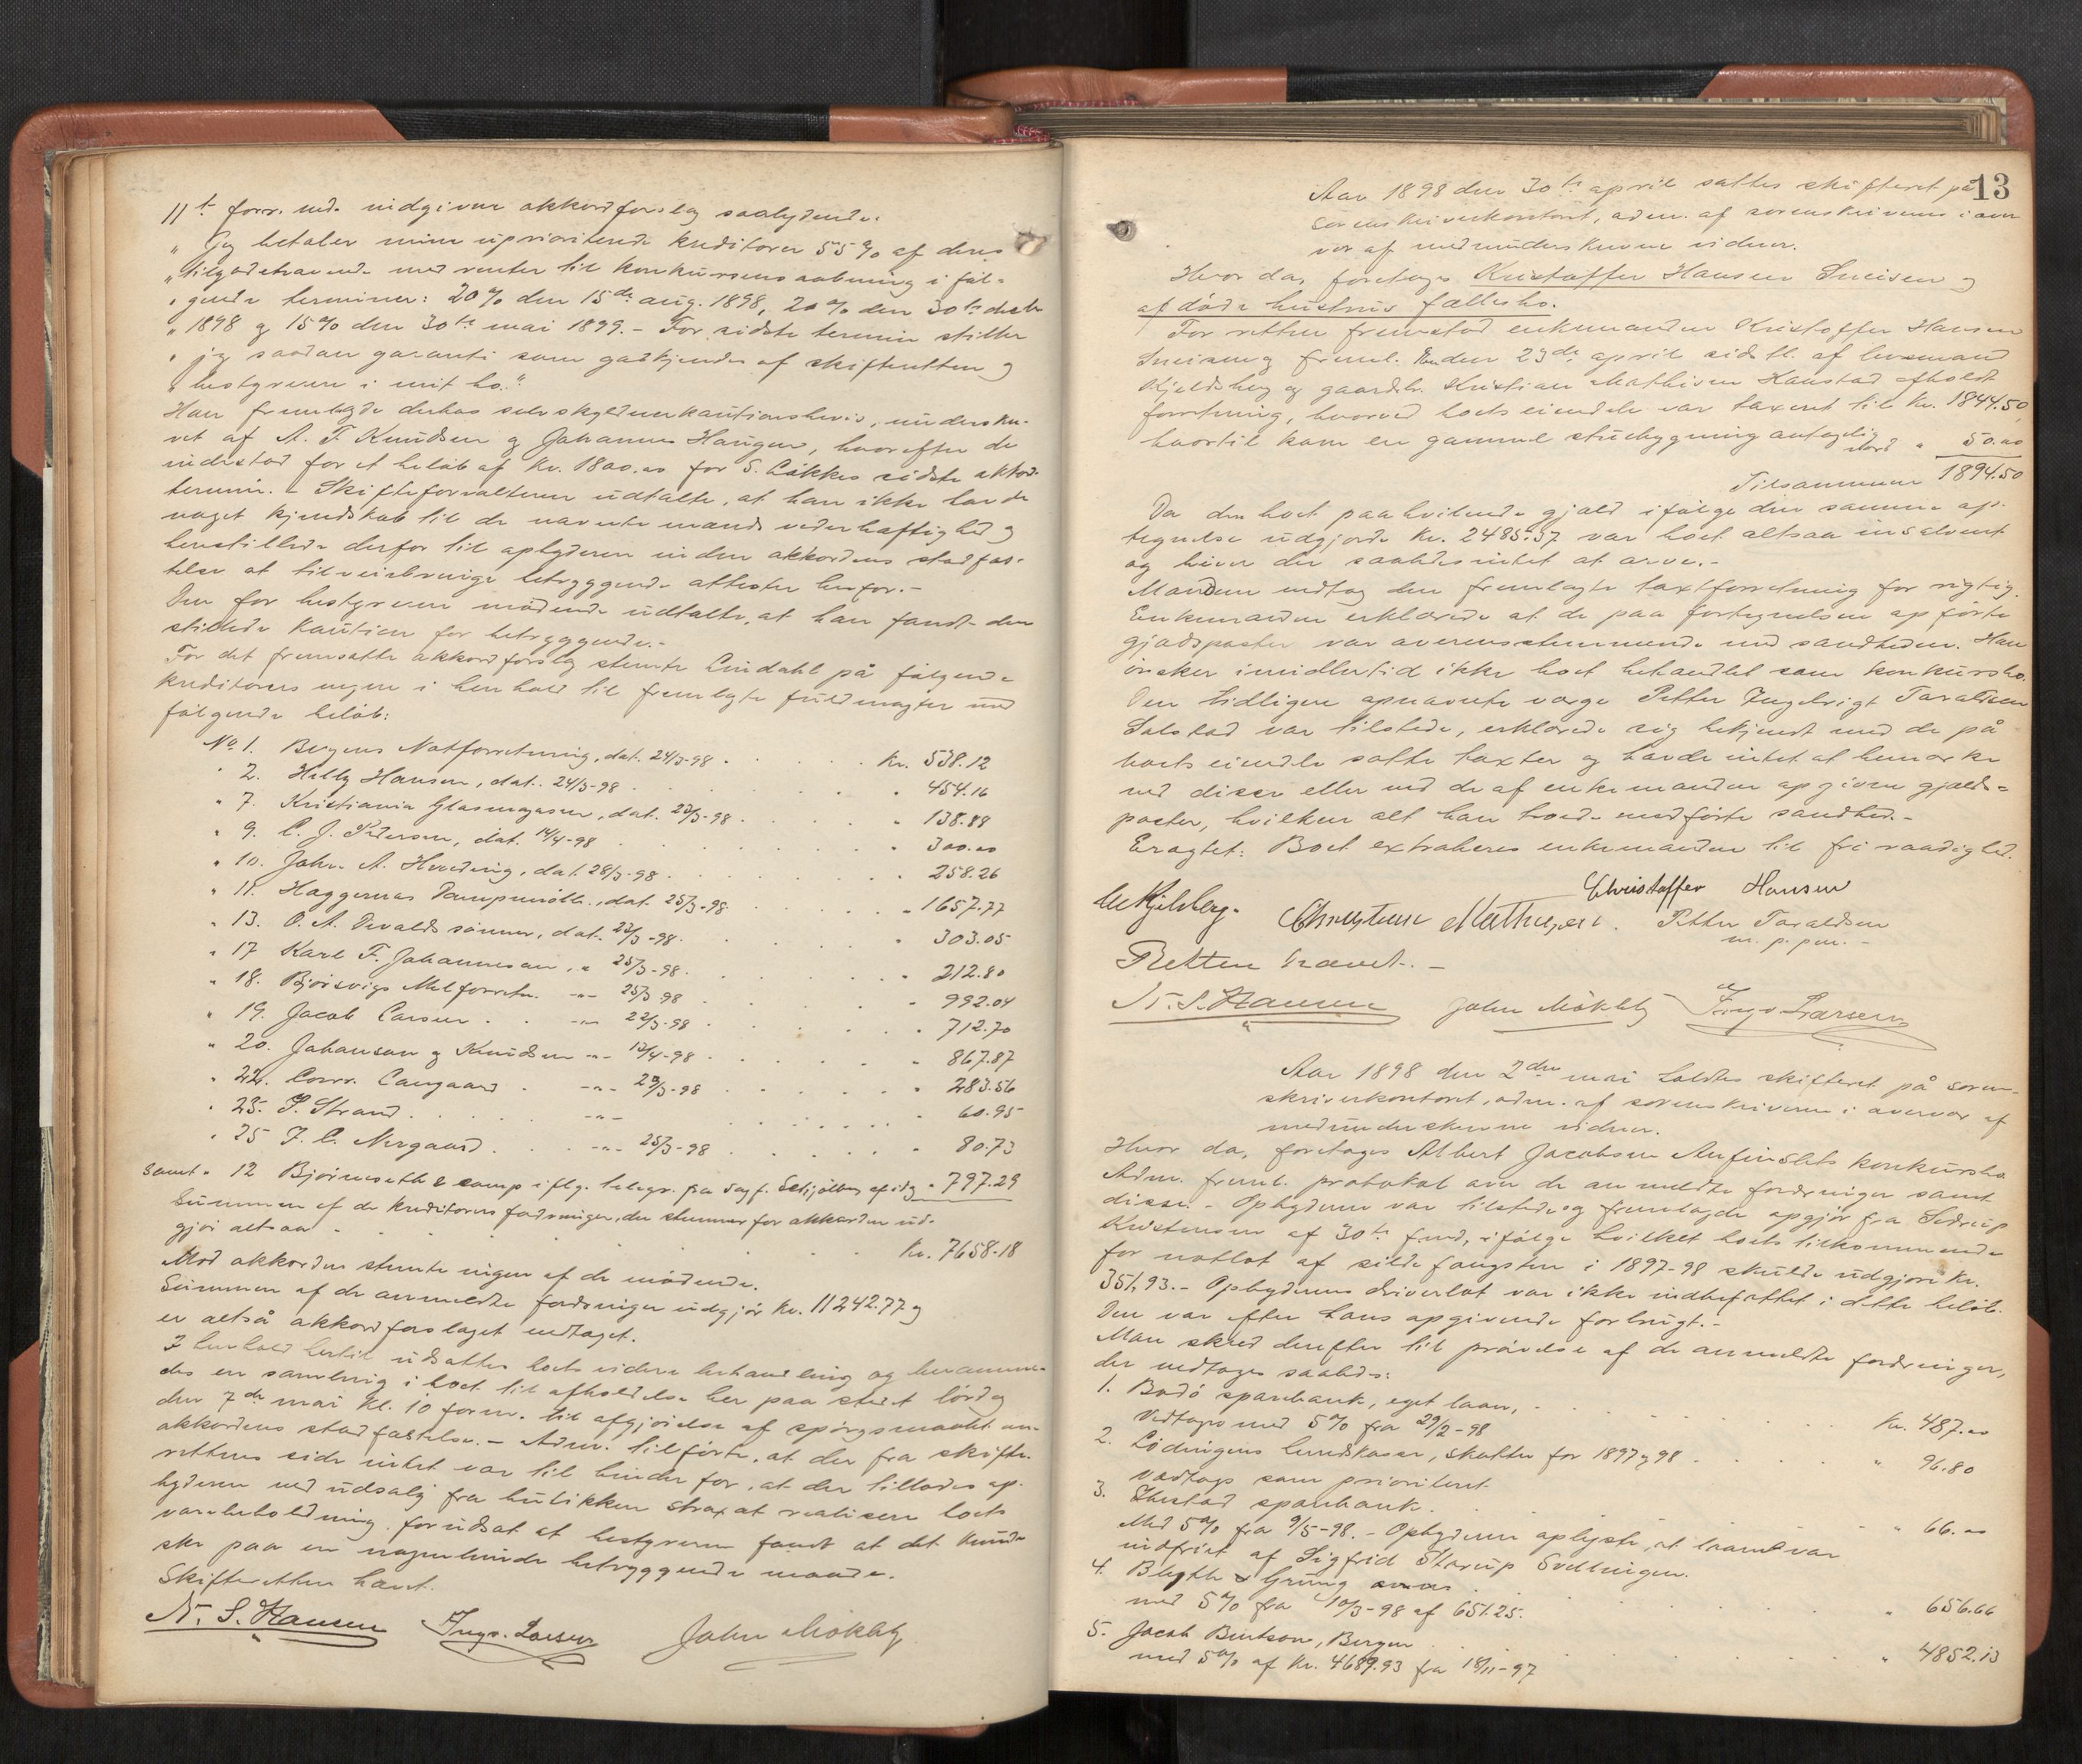 11t forr. md. indgiven akkordforslag saalydende:
„ Jeg betaler mine uprioriterede kreditorer 55% af deres
„ tilgodehavende med renter til konkursens aabning i føl-
„ gende terminer: 20% den 15de aug. 1898, 20% den 30te decbr
„ 1898 og 15% den 30te mai 1899. – For sidste termin stiller
„ jeg saadan garanti som godkjendes af skifteretten og
„ bestyreren i mit bo."
Han fremlagde derhos selvskyldnerkautionsbevis, underskre-
vet af A. F. Knudsen og Johannes Haugen, hvorefter de
indestod for et beløb af Kr. 1800.00 for S. Løkkes sidste akkord-
termin. – Skifteforvalteren udtalte, at han ikke havde
noget kjendskab til de nævnte mænds vederhæftighed og
henstillede derfor til opbyderen inden akkordens stadfæs-
telse at tilveiebringe betryggende attester herfor. –
Den for bestyreren mødende udtalte, at han fandt den
stillede kaution for betryggende. –
For det fremsatte akkordforslag stemte Lindahl på følgende
kreditorers vegne i henhold til fremlagte fuldmagter med
følgende beløb:
No 1. Bergens Notforretning, dat. 24/3-98 . Kr. 538.12
" 2. Helly Hansen, dat. 24/3-98 . " 454.16
" 7. Kristiania Glasmagasin, dat. 23/3-98 . " 138.89
" 9. C. J. Petersen, dat. 14/4-98 " 300.00
" 10. John A. , dat. 28/3-98 . " 258.26
" 11. Haggernæs Dampmølle, dat. 25/3-98 " 1657.77
" 13. O. A. Devolds sønner, dat. 23/3-98. " 303.05
" 17 Karl F. Johannesen, " 25/3-98. " 212.80
" 18. Bjørsvigs Melforretn. -"- 25/3 98 " 992.04
" 19. Jacob Larsen . . -"- 22/3-98 . " 712.70
" 20. Johanson og Knudsen -"- 12/4-98 . " 867.87
" 22. Conr. Langaard . -"- 29/3-98 . " 283.56
" 23. P. Strand . . -"- . 60.95
" 25 J. C. Nergaard . . -"- 25/3-98 . " 80.73
samt " 12 Bjørnseth & comp iflg. telegr. fra sagf. af idag " 797.29
Summen af de kreditorers fordringer, der stemmer for akkorden ud-
gjør altsaa . Kr. 7658.18
Mod akkorden stemte ingen af de mødende.
Summen af de anmeldte fordringer udgjør Kr. 11242.77 og
er altså akkordforslaget vedtaget.
I henhold hertil udsattes boets videre behandling og beramme-
des en samling i boet til afholdelse her paa stedet lørdag
den 7de mai kl. 10 form. til afgjørelse af spørgsmaalet om
akkordens stadfæstelse. – Adm. tilførte, at der fra skifte-
rettens side intet var til hinder for, at der tillodes op-
byderen ved udsalg fra butikken strax at realisere boets
varebeholdning, forudsat at bestyreren fandt at det kunde
ske paa en nogenlunde betryggende maade.
Skifteretten hævet.
N. S. Hansen Ingv. Larsen John Møkleby
13
Aar 1898 den 30te april sattes skifteret på
sorenskriverkontoret, adm. af sorenskriveren i over-
vær af medunderskrevne vidner.
Hvor da, foretoges Kristoffer Hansen Sneisen og
afdøde hustrus fællesbo.
For retten fremstod enkemanden Kristoffer Hansen
Sneisen og freml. den 23de april sidstl. af lensmand
Kjeldsberg og gaardbr. Kristian Mathisen Hanstad afholdt
forretning, hvorved boets eiendele var taxeret til Kr. 1844.50
hvortil kom en gammel stuebygning antagelig
værd " 50.00
Tilsammen 1894.50
Da den boet paahvilende gjæld ifølge den samme op-
tegnelse udgjorde Kr. 2485.57 var boet altsaa insolvent
og bliver der saaledes intet at arve. –
Manden vedtog den fremlagte taxtforretning for rigtig.
Enkemanden erklærede at de paa fortegnelsen opførte
gjældsposter var overensstemmende med sandheden. Han
ønsker imidlertid ikke boet behandlet som konkursbo.
Den tidligere opnævnte værge Petter Ingebrigt Taraldsen
Solstad var tilstede, erklærede sig bekjendt med de på
boets eiendele satte taxter og havde intet at bemærke
ved disse eller ved de af enkemanden opgivne gjælds-
poster, hvilken alt han troede medførte sandhed. –
Eragtet: Boet extraheres enkemanden til fri raadighed.
Christoffer Hansen
Kjelsberg. Christian Mathisen. Petter Taraldsen
m. p. pen. –
Retten hævet. –
N. S. Hansen John Møkleby Ingv Larsen
Aar 1898 den 2den mai holdtes skifteret på soren-
skriverkontoret, adm. af sorenskriveren i overvær af
medunderskrevne vidner.
Hvor da, foretoges Albert Jacobsen Anfinslets konkursbo
Adm. freml. protokol over de anmeldte fordringer samt
disse. – Opbyderen var tilstede og fremlagde opgjør fra Sedrup
Kristensen af 30te f.md., ifølge hvilket boets tilkommende
for notlot af sildefangsten i 1897-98 skulde udgjøre Kr.
351.93. – Opbyderens driverlot var ikke indbefattet i dette beløb.
Den var efter hans opgivende forbrugt. –
Man skred derefter til prøvelse af de anmeldte fordringer,
der vedtoges saaled.:
1. Bodø sparebank, eget laan, . Kr. 487.00
Vedtages med 5% fra 29/2-98
2. Lødingens herredskasse, skatter for 1897 og 98 . " 96.80
Vedtages som prioriteret.
3. Ibestad sparebank . " 66.00
Med 5% fra 9/5-98. – Opbyderen oplyste, at laanet var
indfriet af Sigfrid Storup Svellingen.
4. Blyth & Grung . " 656.66
med 5% fra 10/3-98 af 651.25.
5. Jacob Berntson, Bergen . " 4852.13
med 5% af Kr. 4689.93 fra 18/11-97